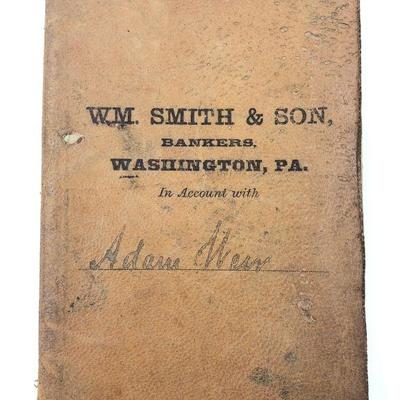 WM. SMITH & SON,
BANKERS,
WASHINGTON, PA.
In Account with
Adam Weir